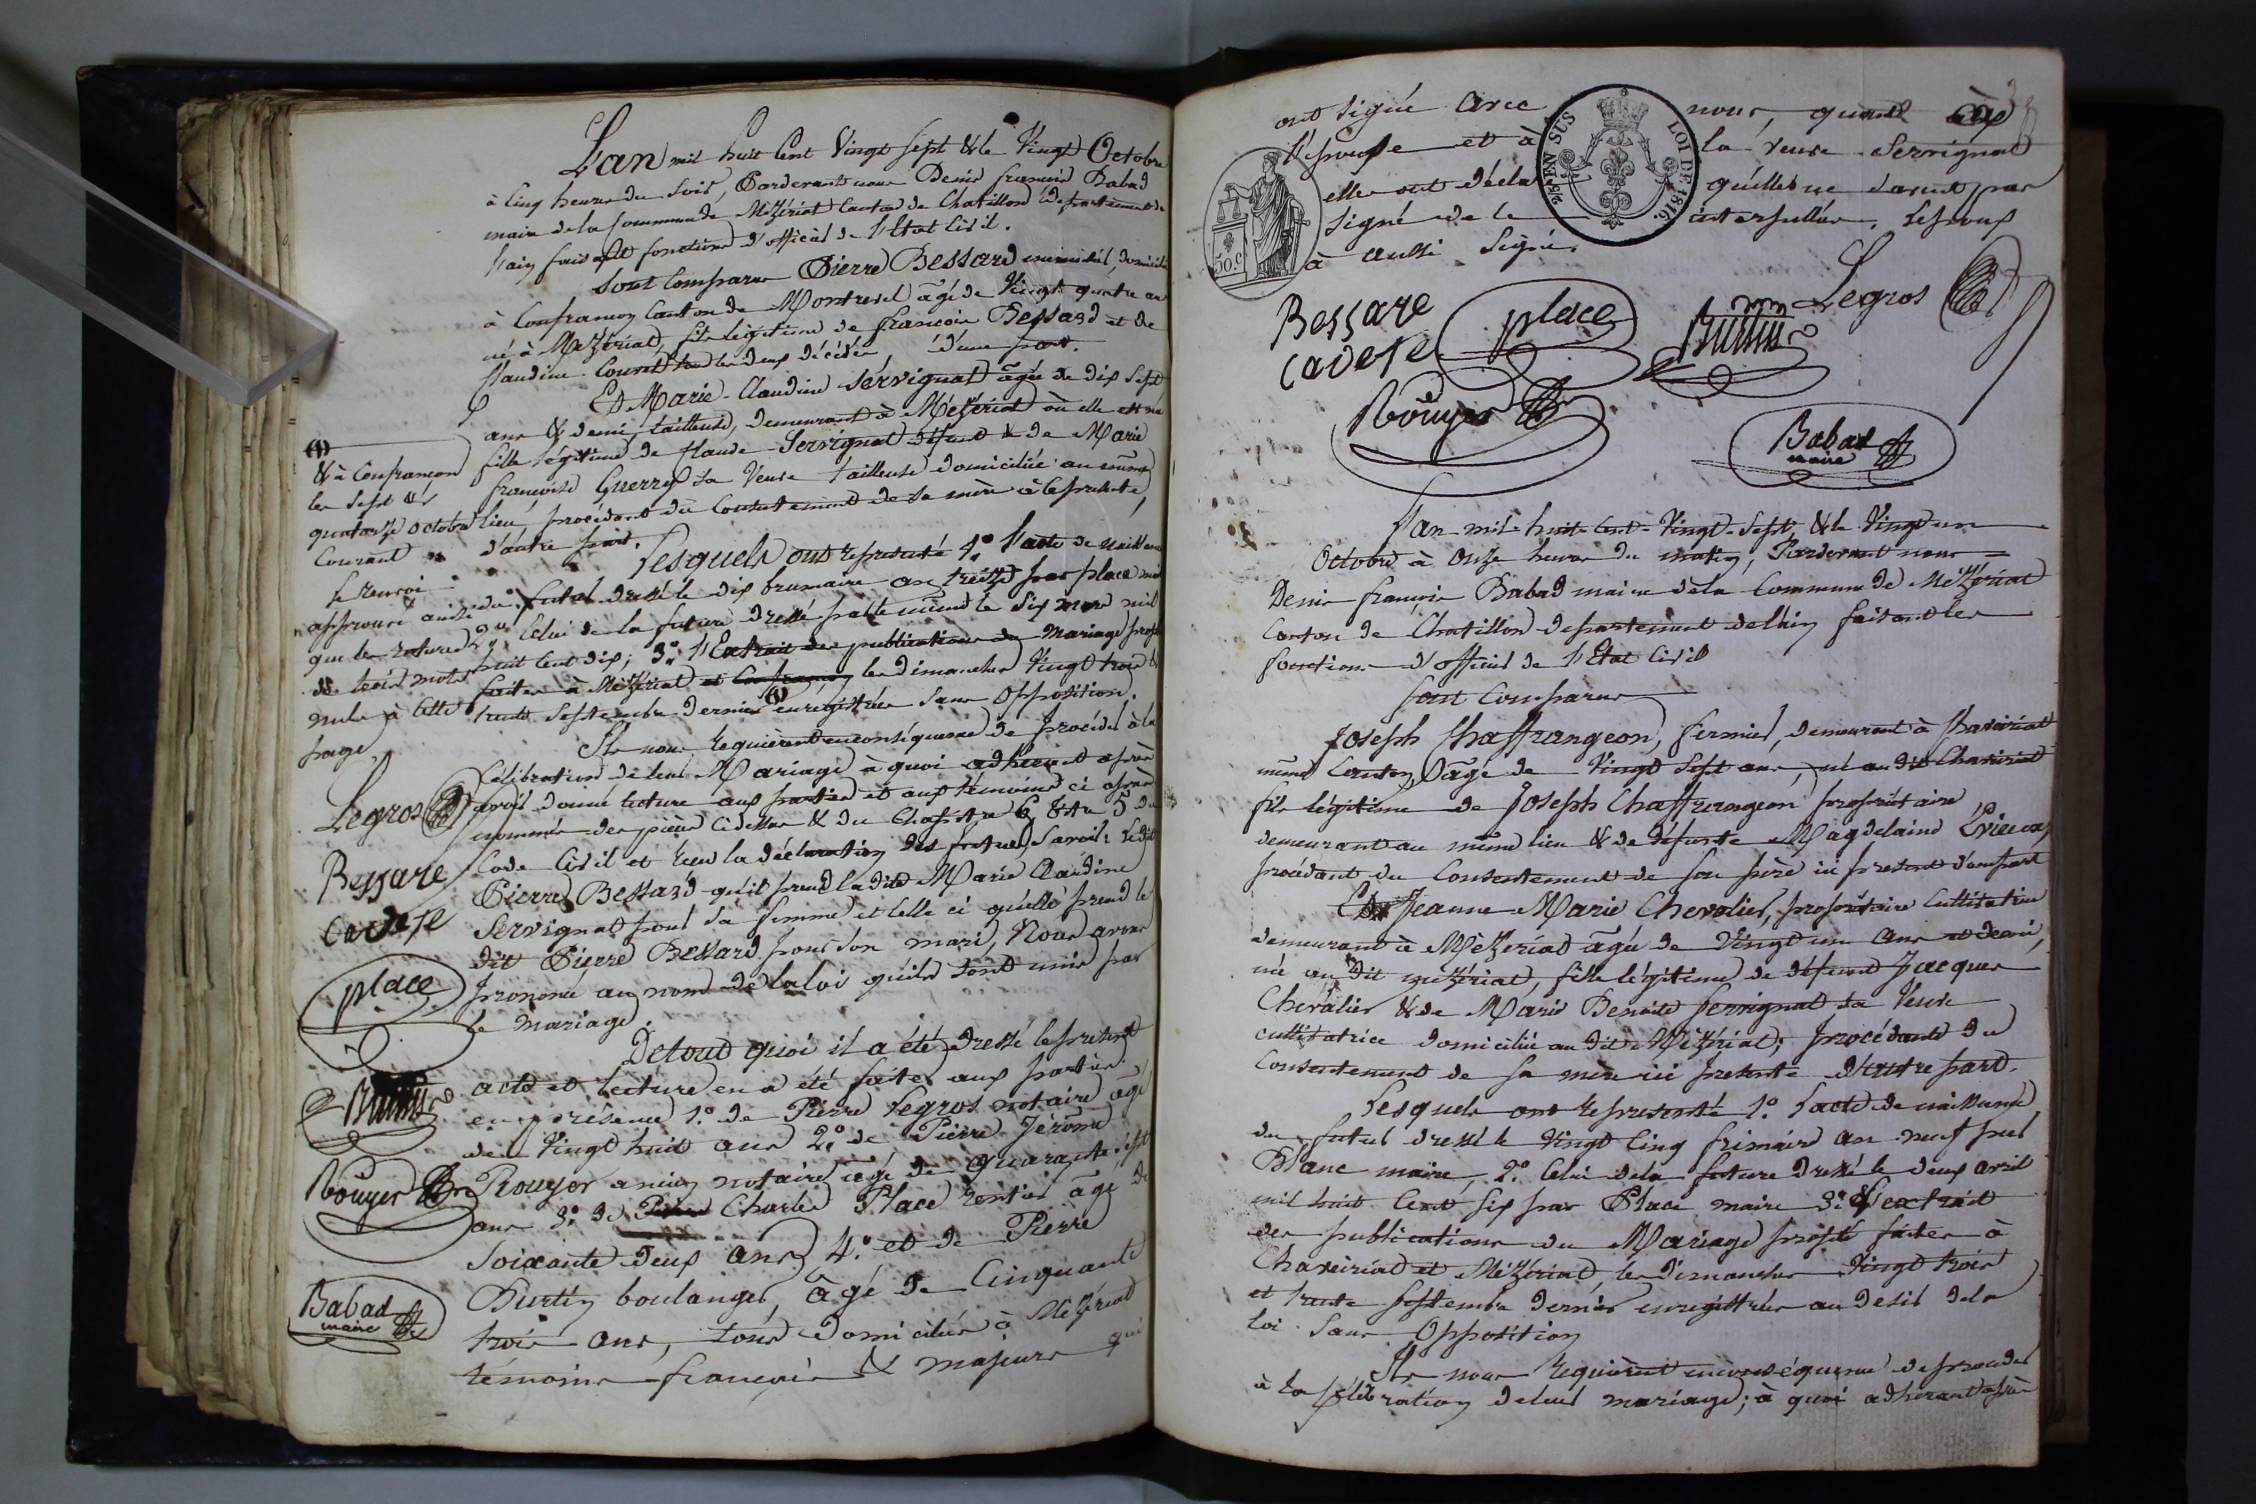 L'an mil huit Cent Vingt sept & le Vingt Octobre
à Cinq heures du Soir, Pardevant nous Denis françois Babad
maire de la Commune de Mézériat Canton de Chatillon département de
l'ain faisant fonctions d'officier de l'Etat Civil.
Sont Comparus Pierre Bessard menuisier, domicilié
à Confrançon Canton de Montrevel âgé de Vingt quatre ans
né à Mézériat, fils légitime de françois Bessard et de
Claudine Couret tous les deux décédés, d'une part.
Et Marie-Claudine Servignat âgée de dix sept
ans & demi, tailleuse, demeurant à Mézériat où elle est née
fille légitime de Claude Servignat défunt & de Marie
françoise Guerry sa Veuve tailleuse domiciliée au même
lieu, procédant du Consentement de sa mère à ce présente,
d'autre part.
Lesquels ont représenté 1º l'acte de naissance
du futur dressé le dix brumaire an treize par place maire
2º Celui de la future dressé par le même le Six mars mil
huit Cent dix; 3º l'Extrait des publications du Mariage projeté
faites à Mézériat et Confrançon les dimanches Vingt trois &
trente Septembre dernier (1) enregistrées sans Opposition.
Ils nous requièrent en conséquence de procéder à la
Célébration de leur Mariage à quoi adhérant après
avoir donné lecture aux parties et aux témoins ci après
nommés des pièces ci dessus & du Chapitre 6 & tre 5 du
Code Civil et reçu la déclaration des futurs, Savoir: Ledit
Pierre Bessard qu'il prend ladite Marie Claudine
Servignat pour sa femme et Celle ci qu'elle prend le
dit Pierre Bessard pour Son mari, Nous avons
prononcé au nom de la loi qu'ils sont unis par
le mariage.
De tout quoi il a été dressé le présent
acte et lecture en a été faite aux parties
en présence 1º. de Pierre Legros notaire âgé
de Vingt huit ans 2º. de Pierre Jérôme
Rouyer ancien notaire âgé de quarante sept
ans 3º. de Charles Place rentier âgé de
Soixante deux ans, 4º. et de Pierre
Burtin boulanger, âgé de Cinquante
trois ans, tous domiciliés à Mézériat
témoins français & majeurs qui
(1)
& à Confrançon
les Sept &
quatorze octobre
Courant
le renvoi
approuvé ainsi
que les ratures
de trois mots
nuls à cette
page,
Legros
Bessare
Cadete
place
Burtin
Rouyer
Babad
maire
ont signé avec nous, quant à
l'épouse et à la Veuve Servignat
elles ont déclaré qu'elles ne savent pas
signé de le interpellées. L'époux
à aussi Signé.
2.5ES EN SUS LOI DE 1816.
50.C
Legros
Bessare
Cadete
place
Burtin
Rouyer
Babad
maire
L'an mil huit Cent Vingt Sept, & le Vingt un
Octobre à Onze heures du matin, Pardevant nous
Denis françois Babad maire de la Commune de Mézériat
Canton de Chatillon département de l'ain faisant les
fonctions d'officier de l'Etat Civil
Sont Comparus
Joseph Chaffrangeon, fermier, demeurant à Chaveiriat
même Canton, âgé de Vingt Sept ans, né au dit Chaveiriat
fils légitime de Joseph Chaffrangeon propriétaire
demeurant au même lieu & de défunte Magdelaine
procédant du Consentement de son père ici présent d'une part
Et Jeanne Marie Chevalier, propriétaire Cultivatrice
demeurant à Mézériat âgée de Vingt un ans et demi,
née au dit mézériat, fille légitime de défunt Jacques
Chevalier & de Marie Benoite Servignat sa Veuve
cultivatrice domiciliée au dit Mézériat; procédant du
Consentement de sa mère ici présente d'autre part.
Lesquels ont représenté 1º. l'acte de naissance
du futur dressé le Vingt Cinq frimaire an neuf par
Blanc maire, 2º. Celui de la future dressé le deux avril
mil huit Cent Six par Place maire 3º. l'extrait
des publications du Mariage projeté faites à
Chaveiriat et Mézériat, les dimanches Vingt trois
et trente Septembre dernier enregistrées au desir de la
loi Sans Opposition
Ils nous requièrent en conséquence de procéder
à la Célébration de leur mariage; à quoi adhérant après